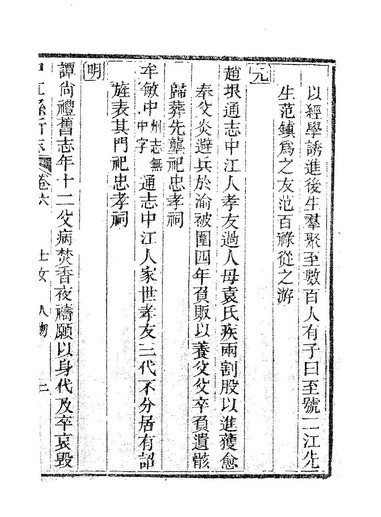 以經學誘進後生羣聚至數百人有子曰至號二江先
生范鎮為之友范百祿從之游
元
趙垠通志中江人孝友過人母袁氏疾兩割股以進獲愈
奉父炎避兵於渝被圍四年負販以養父父卒負遺骸
歸葬先壟祀忠孝祠
牟敏中州志無中字通志中江人家世孝友三代不分居有詔
旌表其門祀忠孝祠
明
譚尚禮舊志年十二父病焚香夜禱願以身代及卒哀毀
中江縣新志 卷六 士女 人物